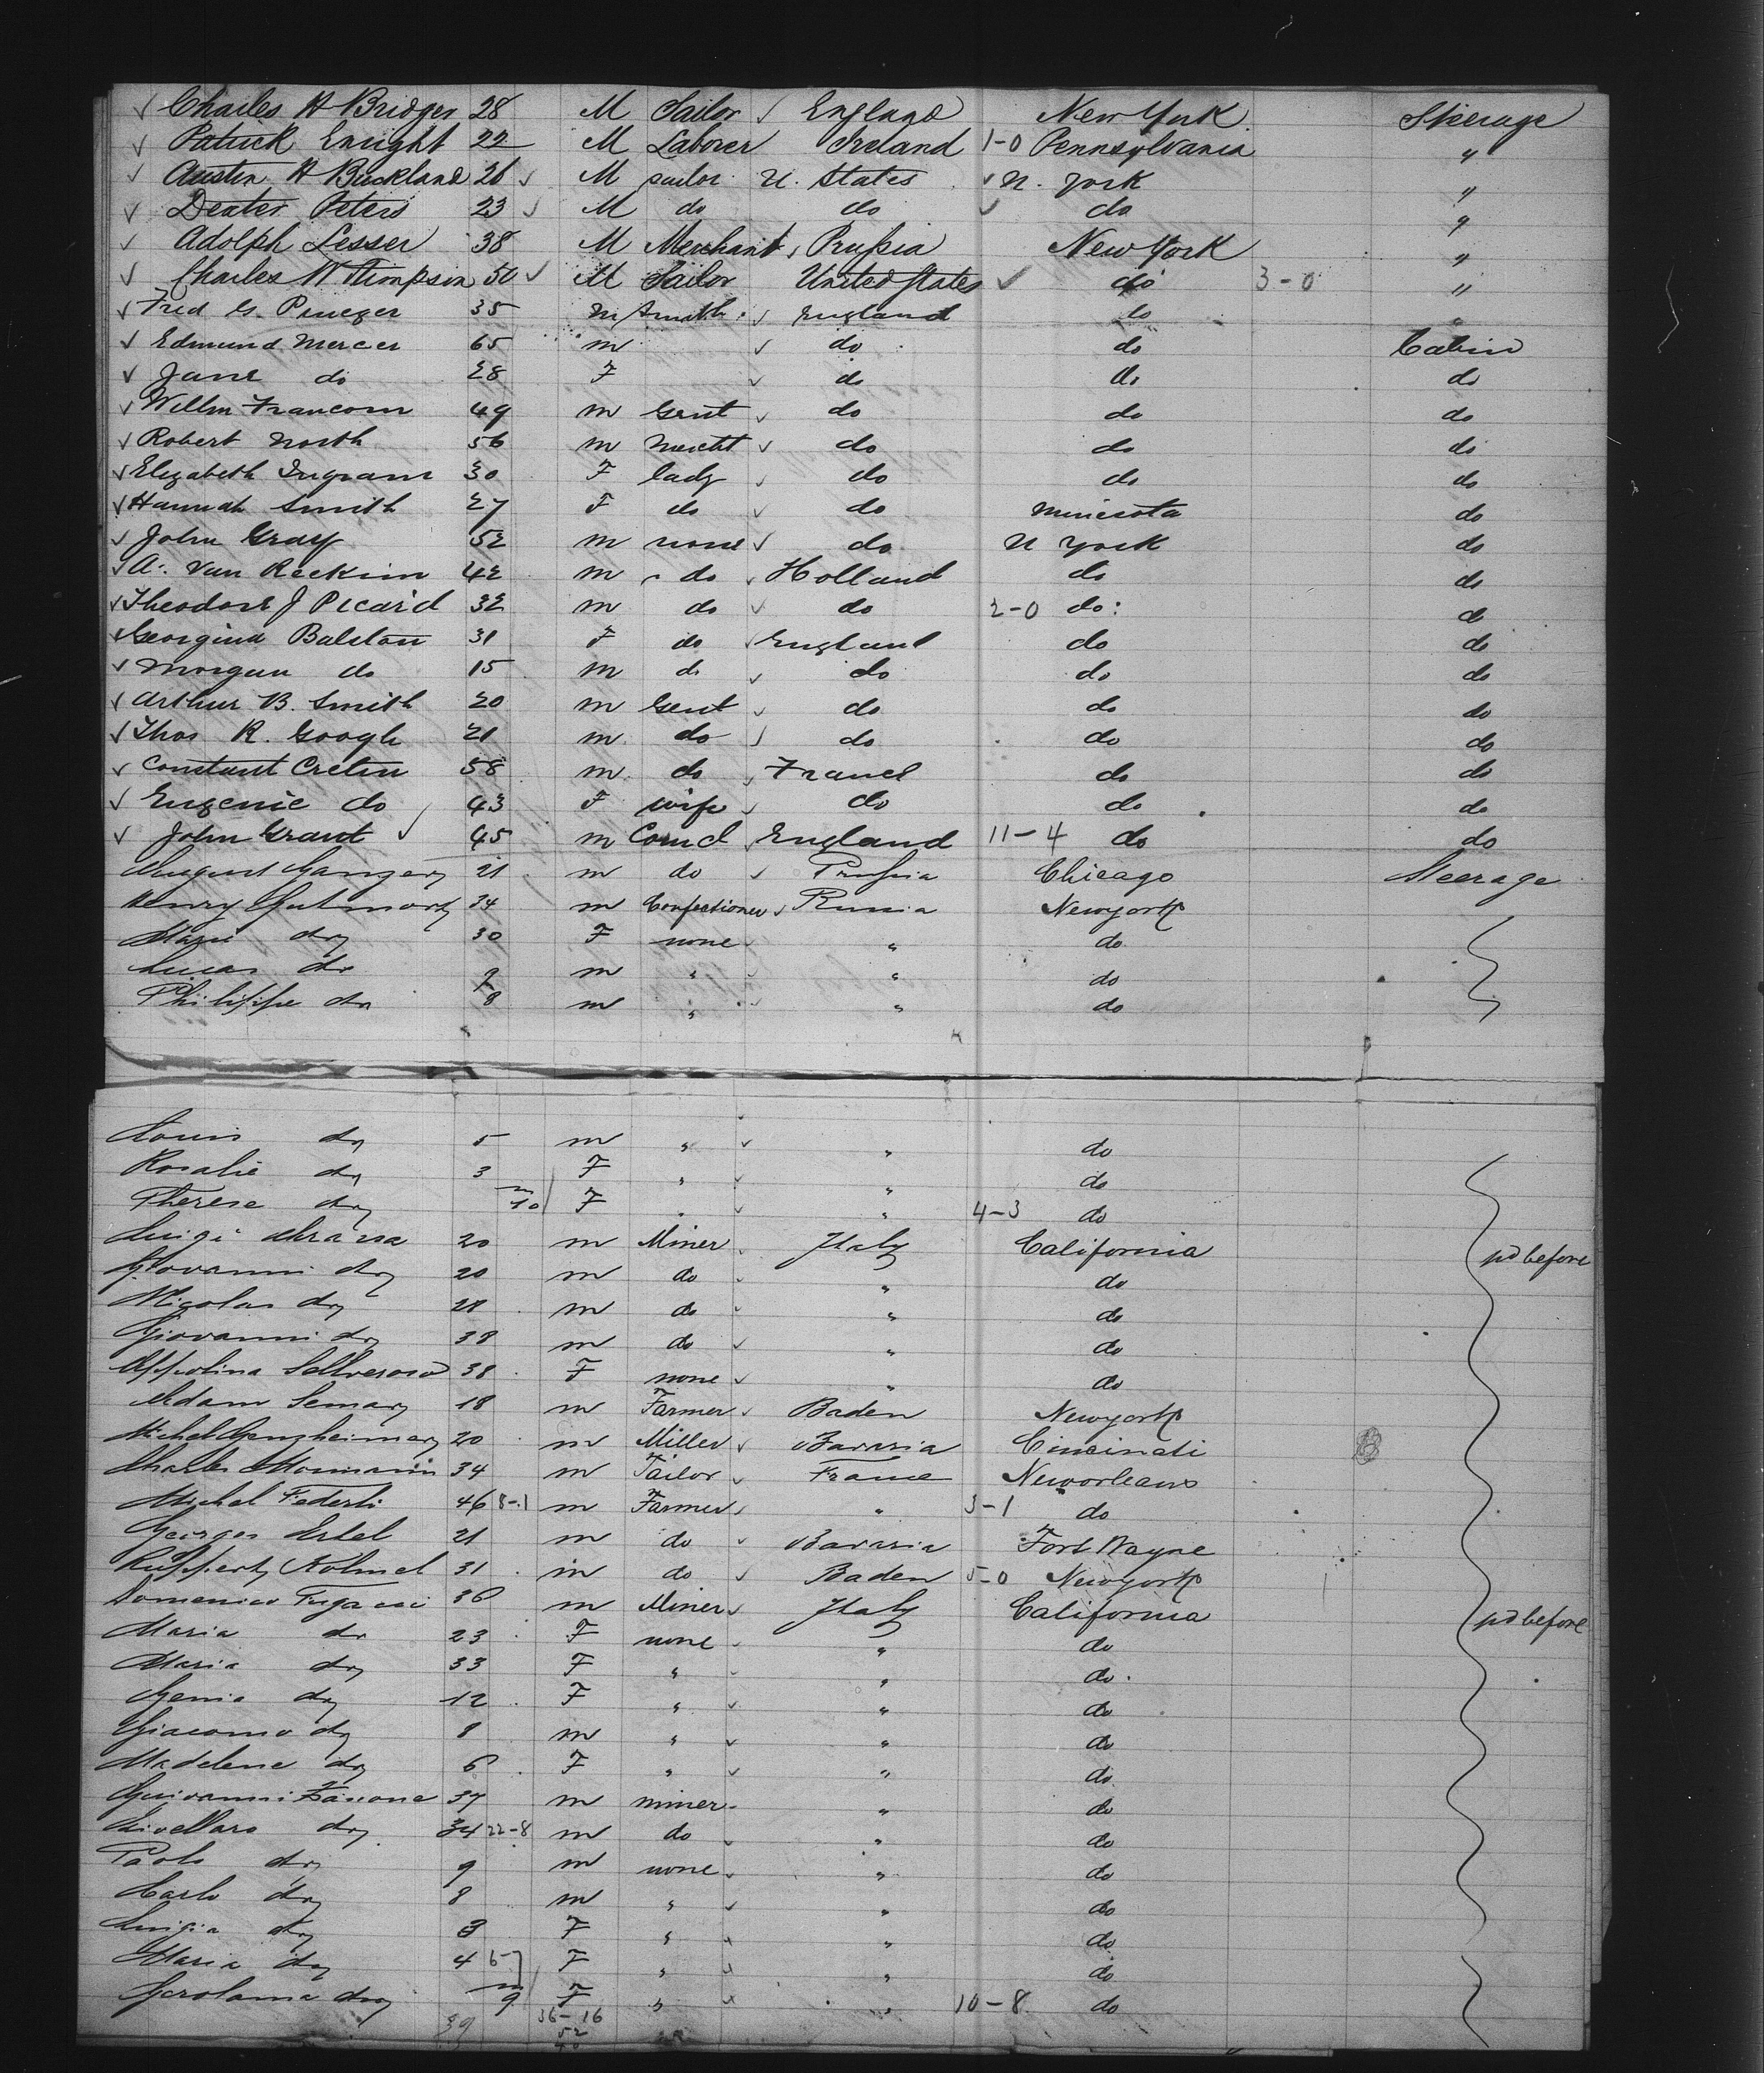 Charles H Bridger 28 M Sailor England New York Steerage
Patrick Enright 22 M Laborer Ireland 1-0 Pennsylvania "
Austin H Buckland 26 M sailor U. States N. York "
Dexter Peters 23 M do do do "
Adolph Lesser 38 M Merchant Prussia New York "
Charles W Timpson 50 M Sailor United States do 3-0 "
Fred G. 35 m Smith England do "
Edmund Mercer 65 m do do Cabin
Jane do 28 F do do do
Willm Francom 49 m Gent do do do
Robert North 56 m Mercht do do do
Elizabeth Ingram 30 F lady do do do
Hannah Smith 27 F do do Minesota do
John Gray 52 m none do N York do
A. Van Reekim 42 m do Holland do do
Theodore J Picard 32 m do do 2-0 do do
Georgina Balston 31 F do England do do
Morgan do 15 m do do do do
Arthur B. Smith 20 m Gent do do do
Thos R. Googh 21 m do do do do
Constant Cretin 58 m do France do do
Eugenie do 43 F wife do do do
John Grant 45 m England 11-4 do do
August 21 m do Prussia Chicago Steerage
Henry 34 m Confectioner Russia Newyork
Marie do 30 F none " do
Lucas do 9 m " " do
Philippe do 8 m " " do
Louis do 5 m " " do
Rosalie do 3 F " " do
Therese do m 10 F " " 4-3 do
Luigi 20 m Miner Italy California pd before
Giovanni do 20 m do " do
Nicolas do 28 m do " do
Giovanni do 38 m do " do
Appolina 38 F none " do
Adam 18 m Farmer Baden Newyork
Michel 20 m Miller Bavaria Cincinati
Charles 34 m Tailor France Neworleans
Michel Federli 46 8-1 m Farmer " 3-1 do
Georges Ertel 21 m do Bavaria Fort Wayne
Ruppert 31 m do Baden 5-0 Newyork
Domenico 36 m Miner Italy California pd before
Maria do 23 F none " do
Maria do 33 F " " do
Genia do 12 F " " do
Giacomo do 8 m " " do
Madelene do 6 F " " do
Guivanni 37 m miner " do
do 34 22-8 m do " do
Paolo do 9 m none " do
Carlo do 8 m " " do
Luigia do 3 F " " do
Maria do 4 6 F " " do
Gerolama do m 9 F " " 10-8 do
39 36-16
52